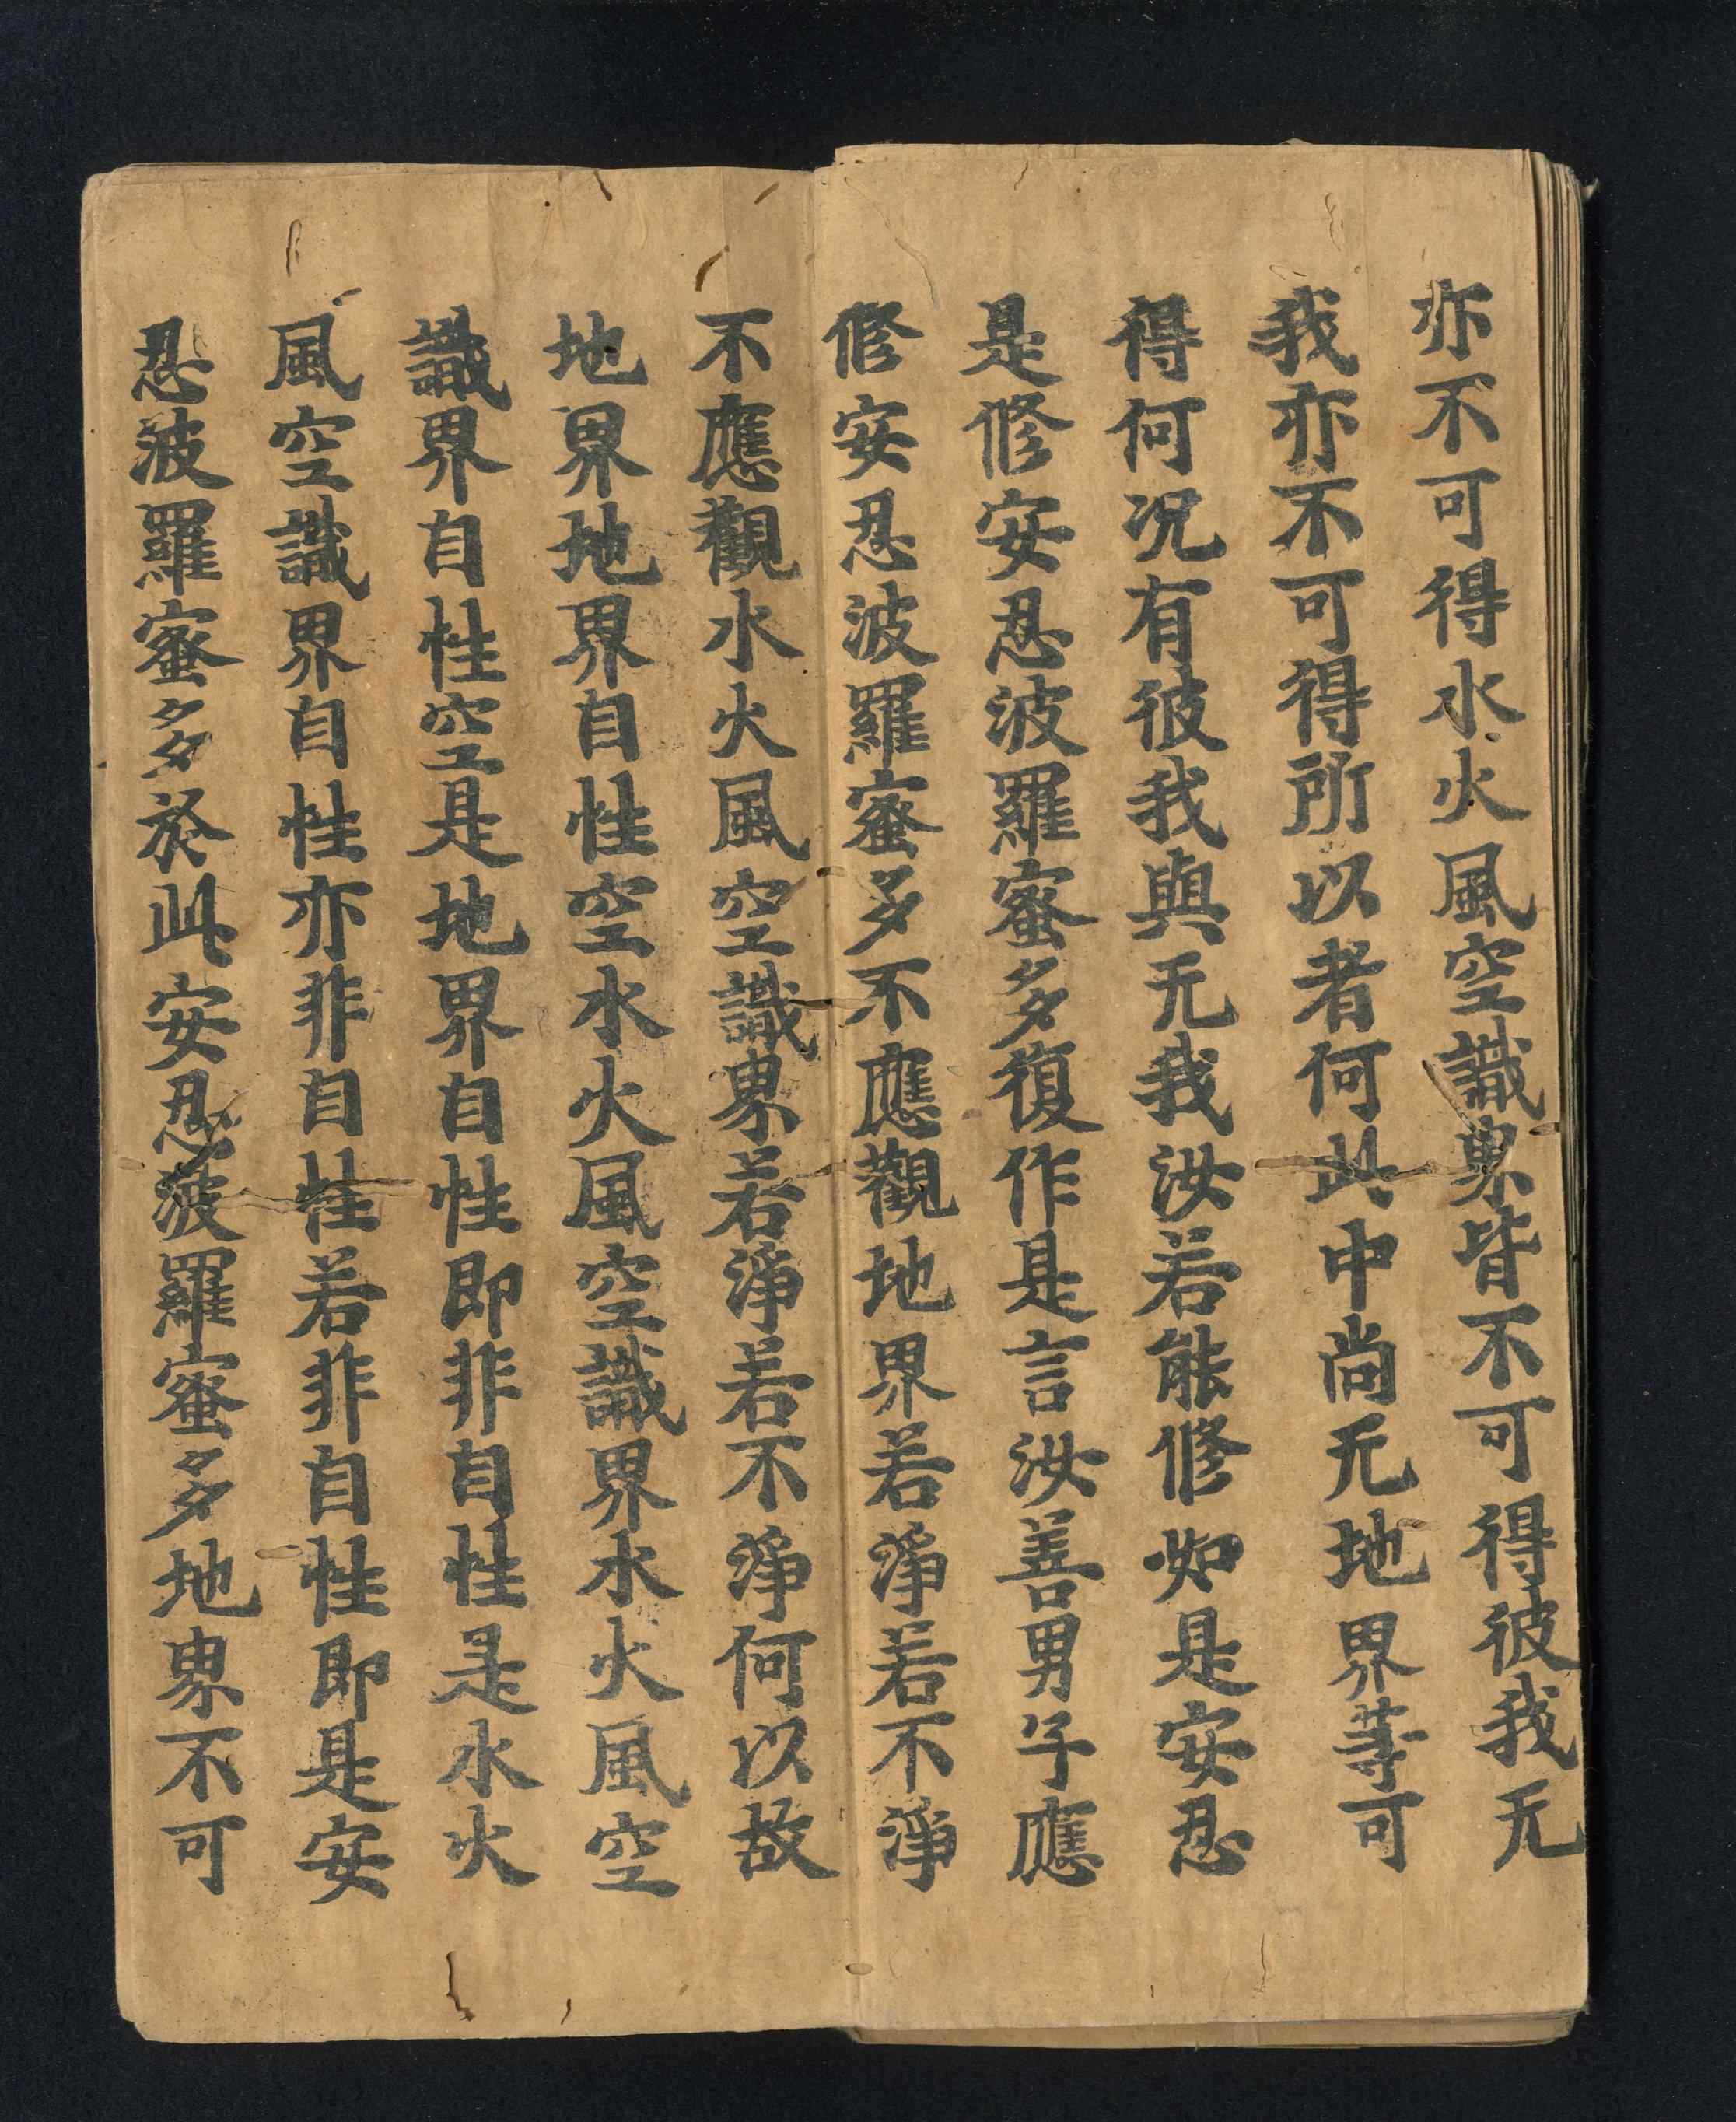 亦不可得水火風空識界皆不可得彼我无
我亦不可得所以者何此中尚无地界等可
得何况有彼我與无我汝若能修如是安忍
是修安忍波羅蜜多復作是言汝善男子應
修安忍波羅蜜多不應觀地界若淨若不淨
不應觀水火風空識界若淨若不淨何以故
地界地界自性空水火風空識界水火風空
識界自性空是地界自性即非自性是水火
風空識界自性亦非自性若非自性即是安
忍波羅蜜多於此安忍波羅蜜多地界不可